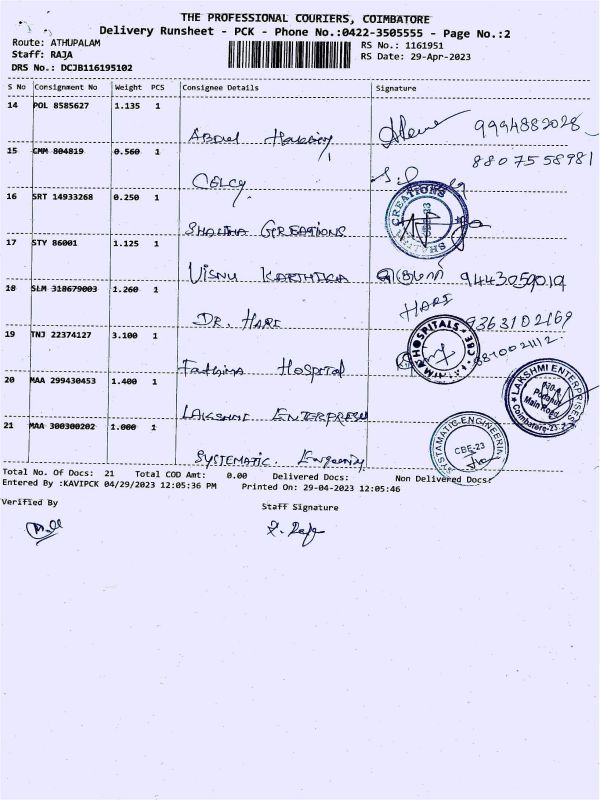 THE PROFESSIONAL COURIERS, COIMBATORE
Delivery Runsheet - PCK - Phone No.:0422-3505555 - Page No.:2
Route: ATHUPALAM
RS No.: 1161951
Staff: RAJA
RS Date: 29-Apr-2023
DRS No.: DCJB116195102
S No Consignment No Weight PCS Consignee Details Signature
14 POL 8585627 1.135 1
Abdul 9994882028
15 CMM 804819 0.560 1
8807558981
CELCY
16 SRT 14933268 0.250 1
SHALIHA CREATIONS
CBE-23
17 STY 86001 1.125 1
VISNU KARTHIKA 9443059019
18 SLM 318679003 1.260 1
HARI
DR. HARI 9363102169
19 TNJ 22374127 3.100 1
HOSPITALS CBE
8810021112
Fathima Hospital
20 MAA 299430453 1.400 1
LAKSHMI ENTERPRISES
Podanur
Main Road
Coimbatore-23
LAKSHMI ENTERPRESES
21 MAA 300300202 1.000 1
SYSTAMATIC ENGINEERING
CBE-23
SYSTEMATIC Engineering
Total No. Of Docs: 21 Total COD Amt: 0.00 Delivered Docs: Non Delivered Docs:
Entered By :KAVIPCK 04/29/2023 12:05:36 PM Printed On: 29-04-2023 12:05:46
Verified By
Staff Signature